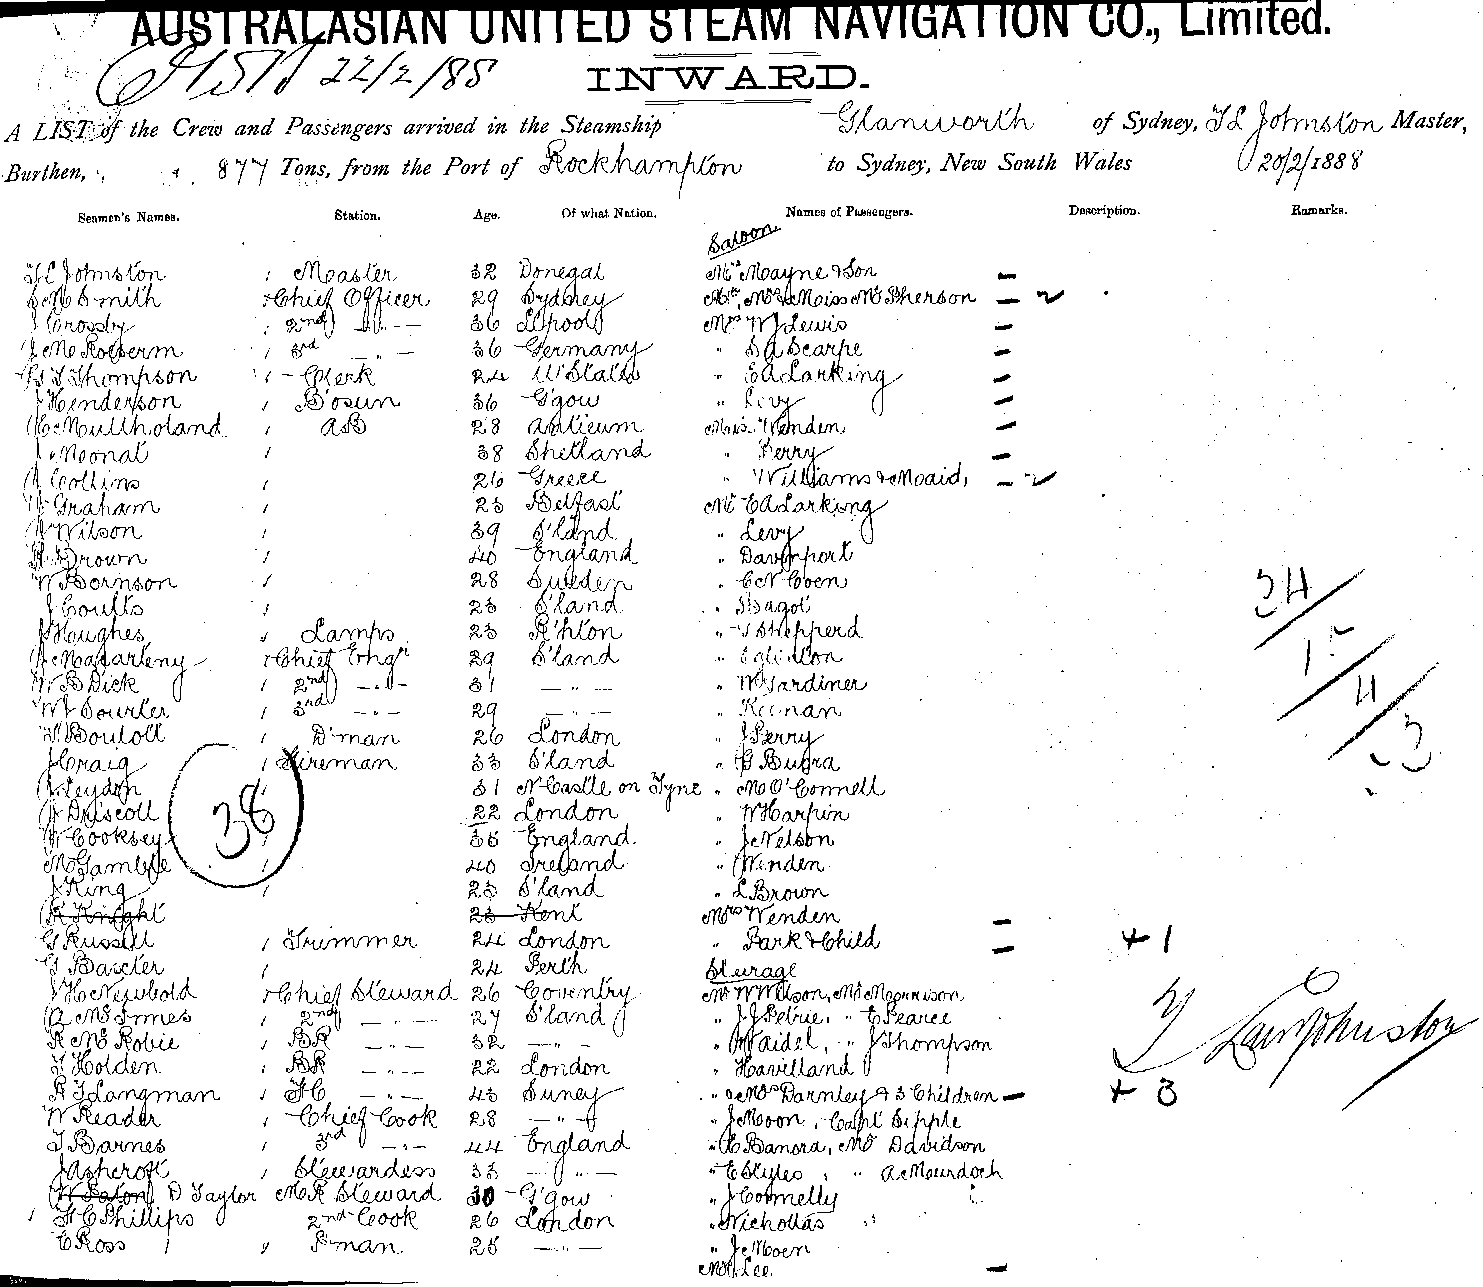 AUSTRALASIAN UNITED STEAM NAVIGATION CO., Limited.
22/2/88
INWARD.
A LIST of the Crew and Passengers arrived in the Steamship Glanworth of Sydney, T L Johnston Master,
Burthen, 877 Tons, from the Port of Rockhampton to Sydney, New South Wales 20/2/1888
Seamen's Names. Station. Age. Of what Nation. Names of Passengers. Description. Remarks.
Saloon
T L Johnston Master 32 Donegal Mrs Mayne & Son —
S Mc Smith Chief Officer 29 Sydney Mr, Mrs & Miss McPherson —
J Crosby 2nd —„— 36 L'pool Mrs W J Lewis —
3rd —„— 36 Germany „ S A Scarpe —
Thompson Clerk 24 U'States „ E A Larking —
J Henderson B'osun 36 G'gow „ Levy —
McMullholand AB 28 Miss Wenden —
J Meonat 38 Shetland „ Perry —
J Collins 26 Greece „ Williams & Maid, —
Graham 23 Belfast Mr E A Larking
Wilson 39 S'land „ Levy
Brown 40 England „ Davenport
W Bornson 28 Sweden „ C N Coen
J Coutts 23 S'land „ Bagot
J Hughes Lamps 23 R'hton „ Shepperd
Chief Engr 29 S'land „ Eglinton
W B Dick 2nd —„— 31 —„— „ W Gardiner
3rd —„— 29 —„— „ Keenan
D'man 26 London „ J Perry
J Craig Fireman 33 S'land
J Leydon 31 N Castle on Tyne „ M O'Connell
J Driscoll 22 London „ W Harpin
W Cooksey 36 England „ J Nelson
Mc Gamble 40 Ireland „ Winden
J King 23 S'land „ L Brown
R Knight 23 Kent Mrs Wenden —
G Russell Trimmer 24 London „ Park & Child — + 1
G Baxter 24 Perth Sturage
J H Newbold Chief Steward 26 Coventry Mr W Wilson, Mr Morrison
A McInnes 2nd —„— 27 S'land „ J J Petrie, „ E Pearce
R McRobie BR —„— 32 —„— „ „ J Thompson
T Holden BR —„— 22 London „ Havilland
R T Langman FC —„— 43 Mrs Darnley & 3 Children — + 3
W Reader Chief Cook 28 —„— „ J Moon, Capt Sipple
T Barnes 3rd —„— 44 England „ C Banora, Mr Davidson
J Ashcroft Stewardess 33 —„— „ E Styles, „ A Murdoch
D Taylor M R Steward 30 G'gow „ J Connelly
H C Phillips 2nd Cook 26 London „ Nichollas
C Ross P'man 25 —„— „ J Moen
Lee —
38
34/
15/
4/
3